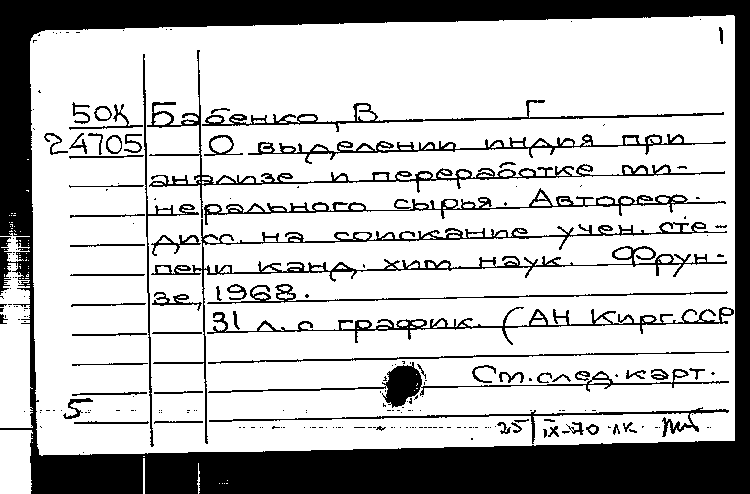 1
50К Бабенко, В Г
24705 О выделении индия при
анализе и переработке ми-
нерального сырья. Автореф.
дисс. на соискание учен. сте-
пени канд. хим. наук. Фрун-
зе, 1968.
31 л. с график. (АН Кирг.ССР
См.след.карт.
5
25 IX-70 лк.